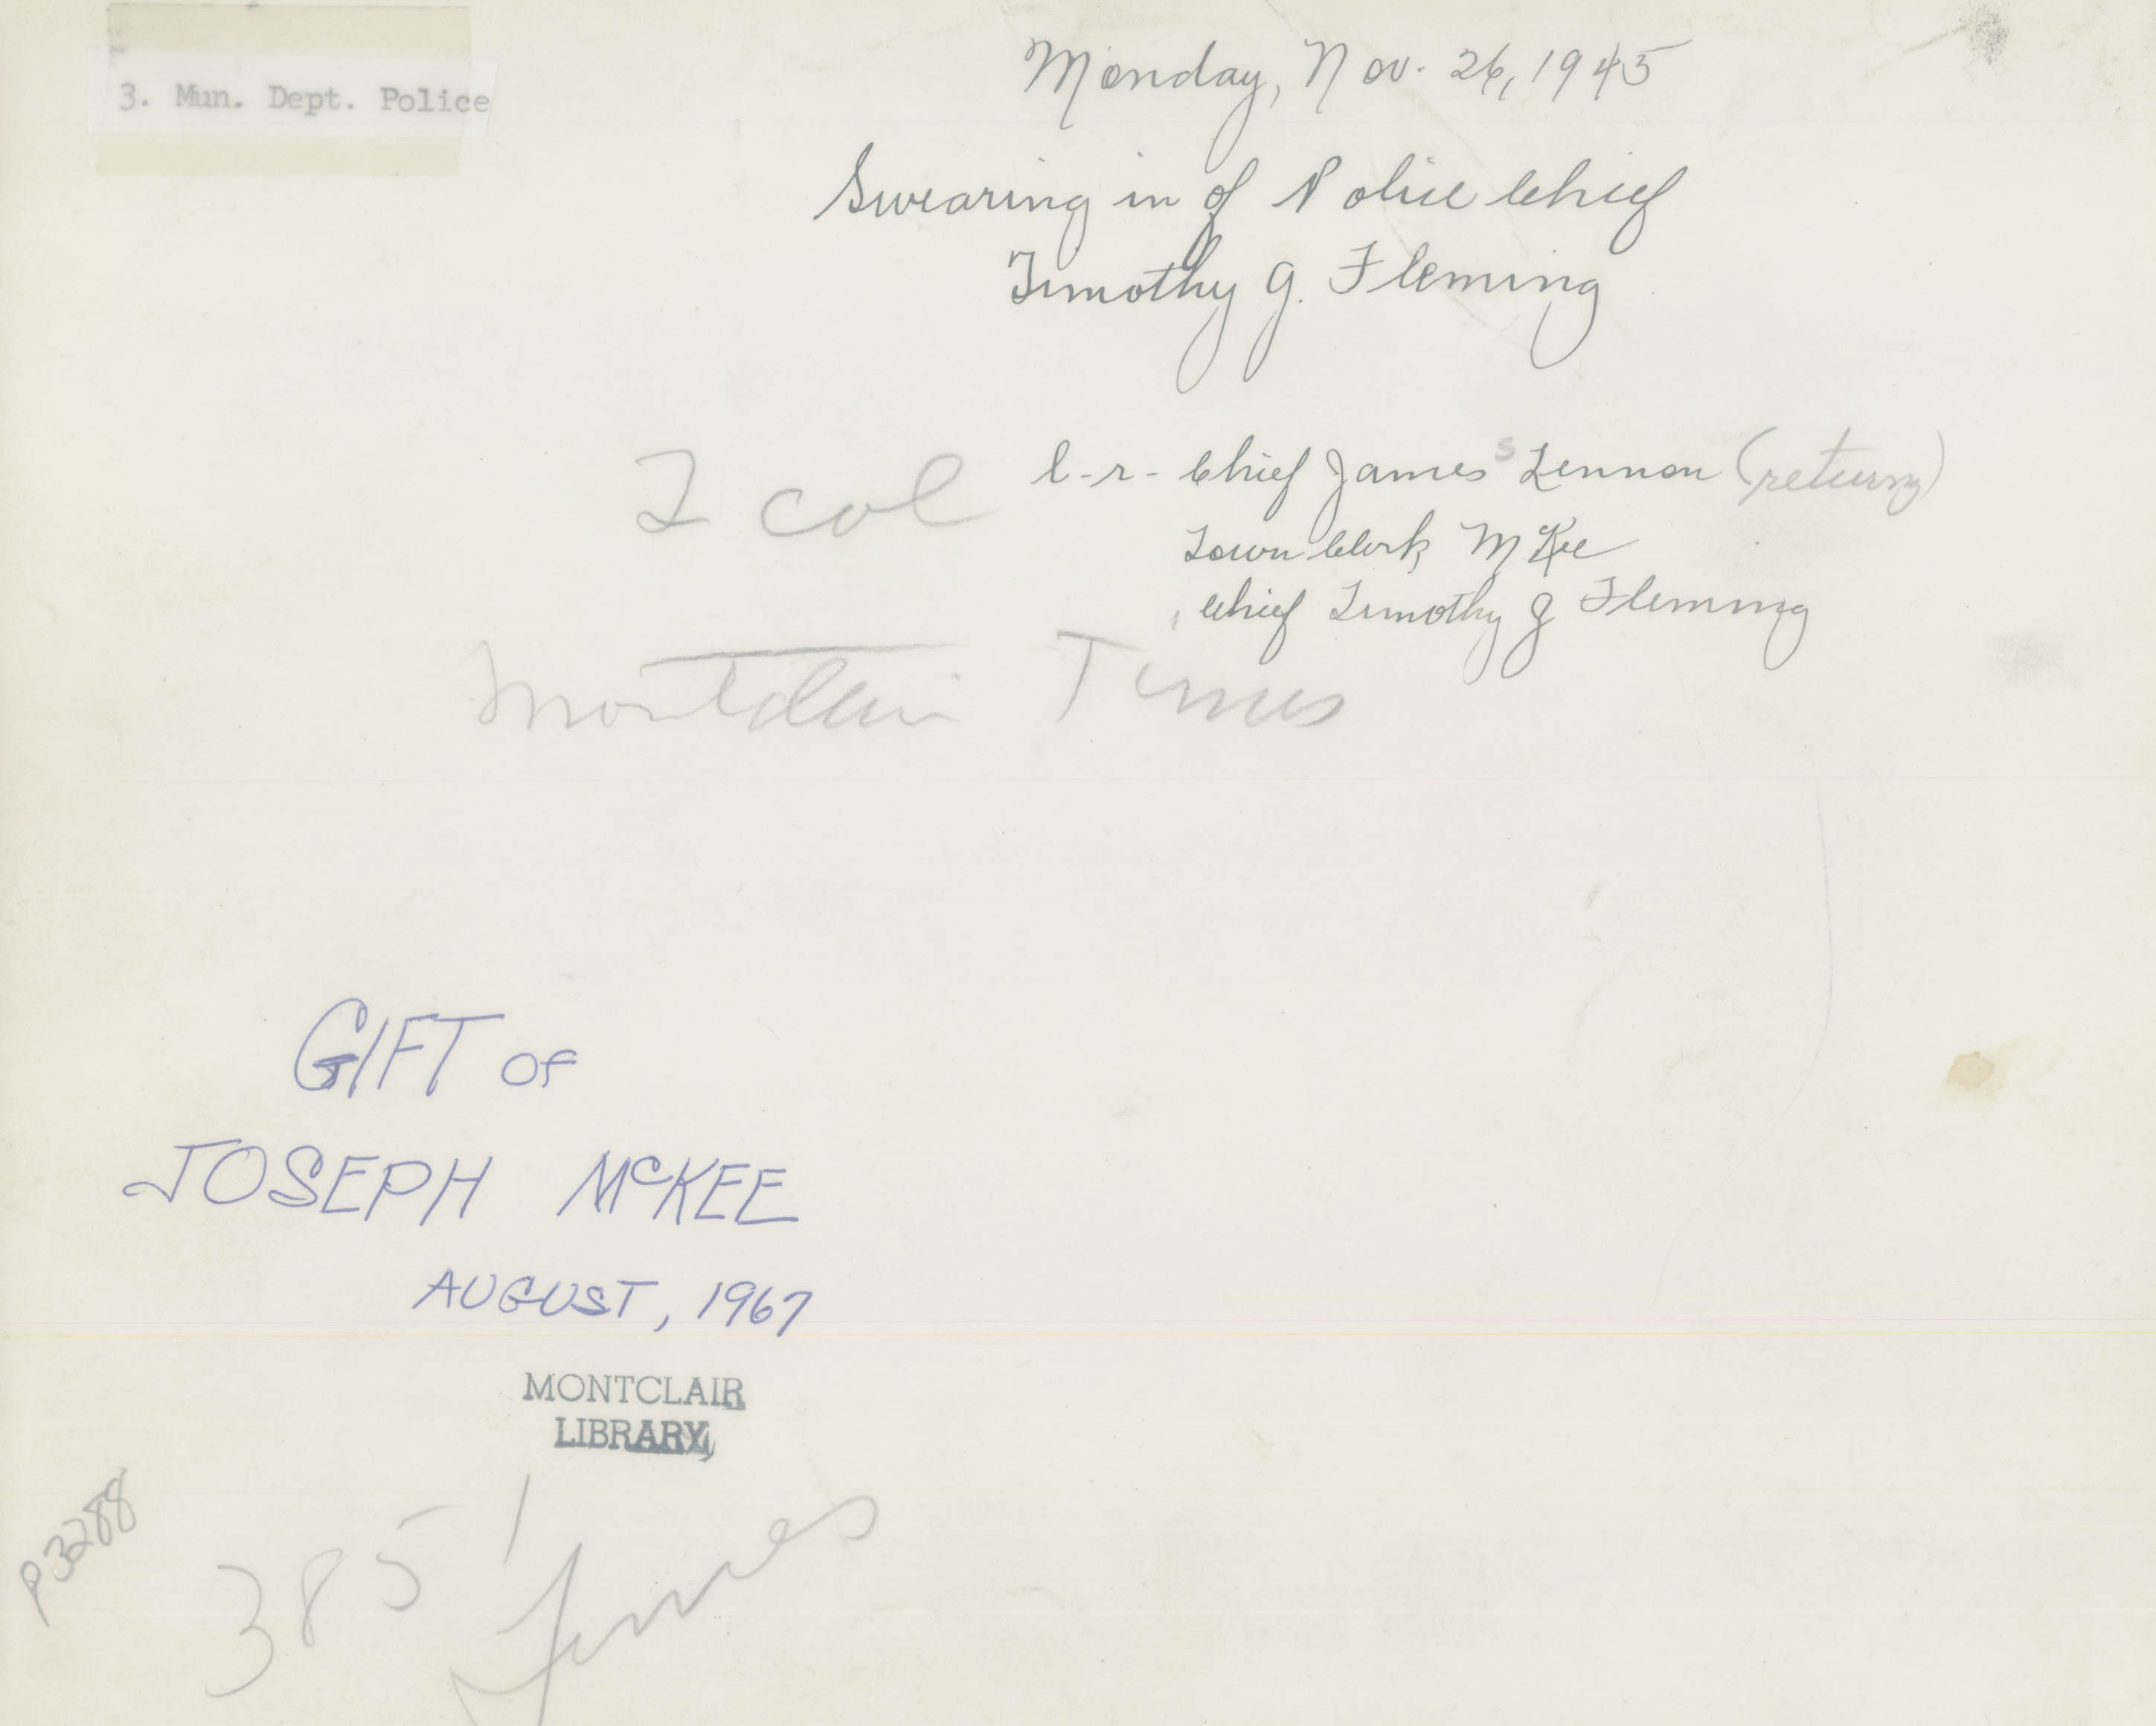 3. Mun. Dept. Police
Monday, Nov. 26, 1945
Swearing in of Police Chief
Timothy J. Fleming
2 col
l-r- Chief James S Lennon (return)
Town Clerk McKee
Chief Timothy J Fleming
Montclair Times
GIFT OF
JOSEPH McKEE
AUGUST, 1967
MONTCLAIR
LIBRARY
P3288
385
Times